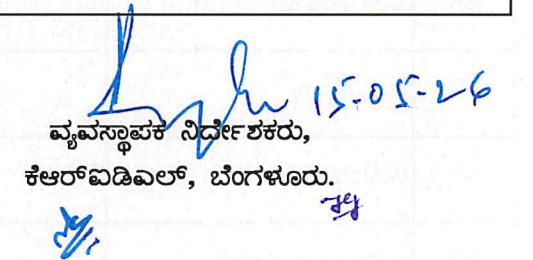 15-05-26
ವ್ಯವಸ್ಥಾಪಕ ನಿರ್ದೇಶಕರು,
ಕೆಆರ್‌ಐಡಿಎಲ್, ಬೆಂಗಳೂರು.